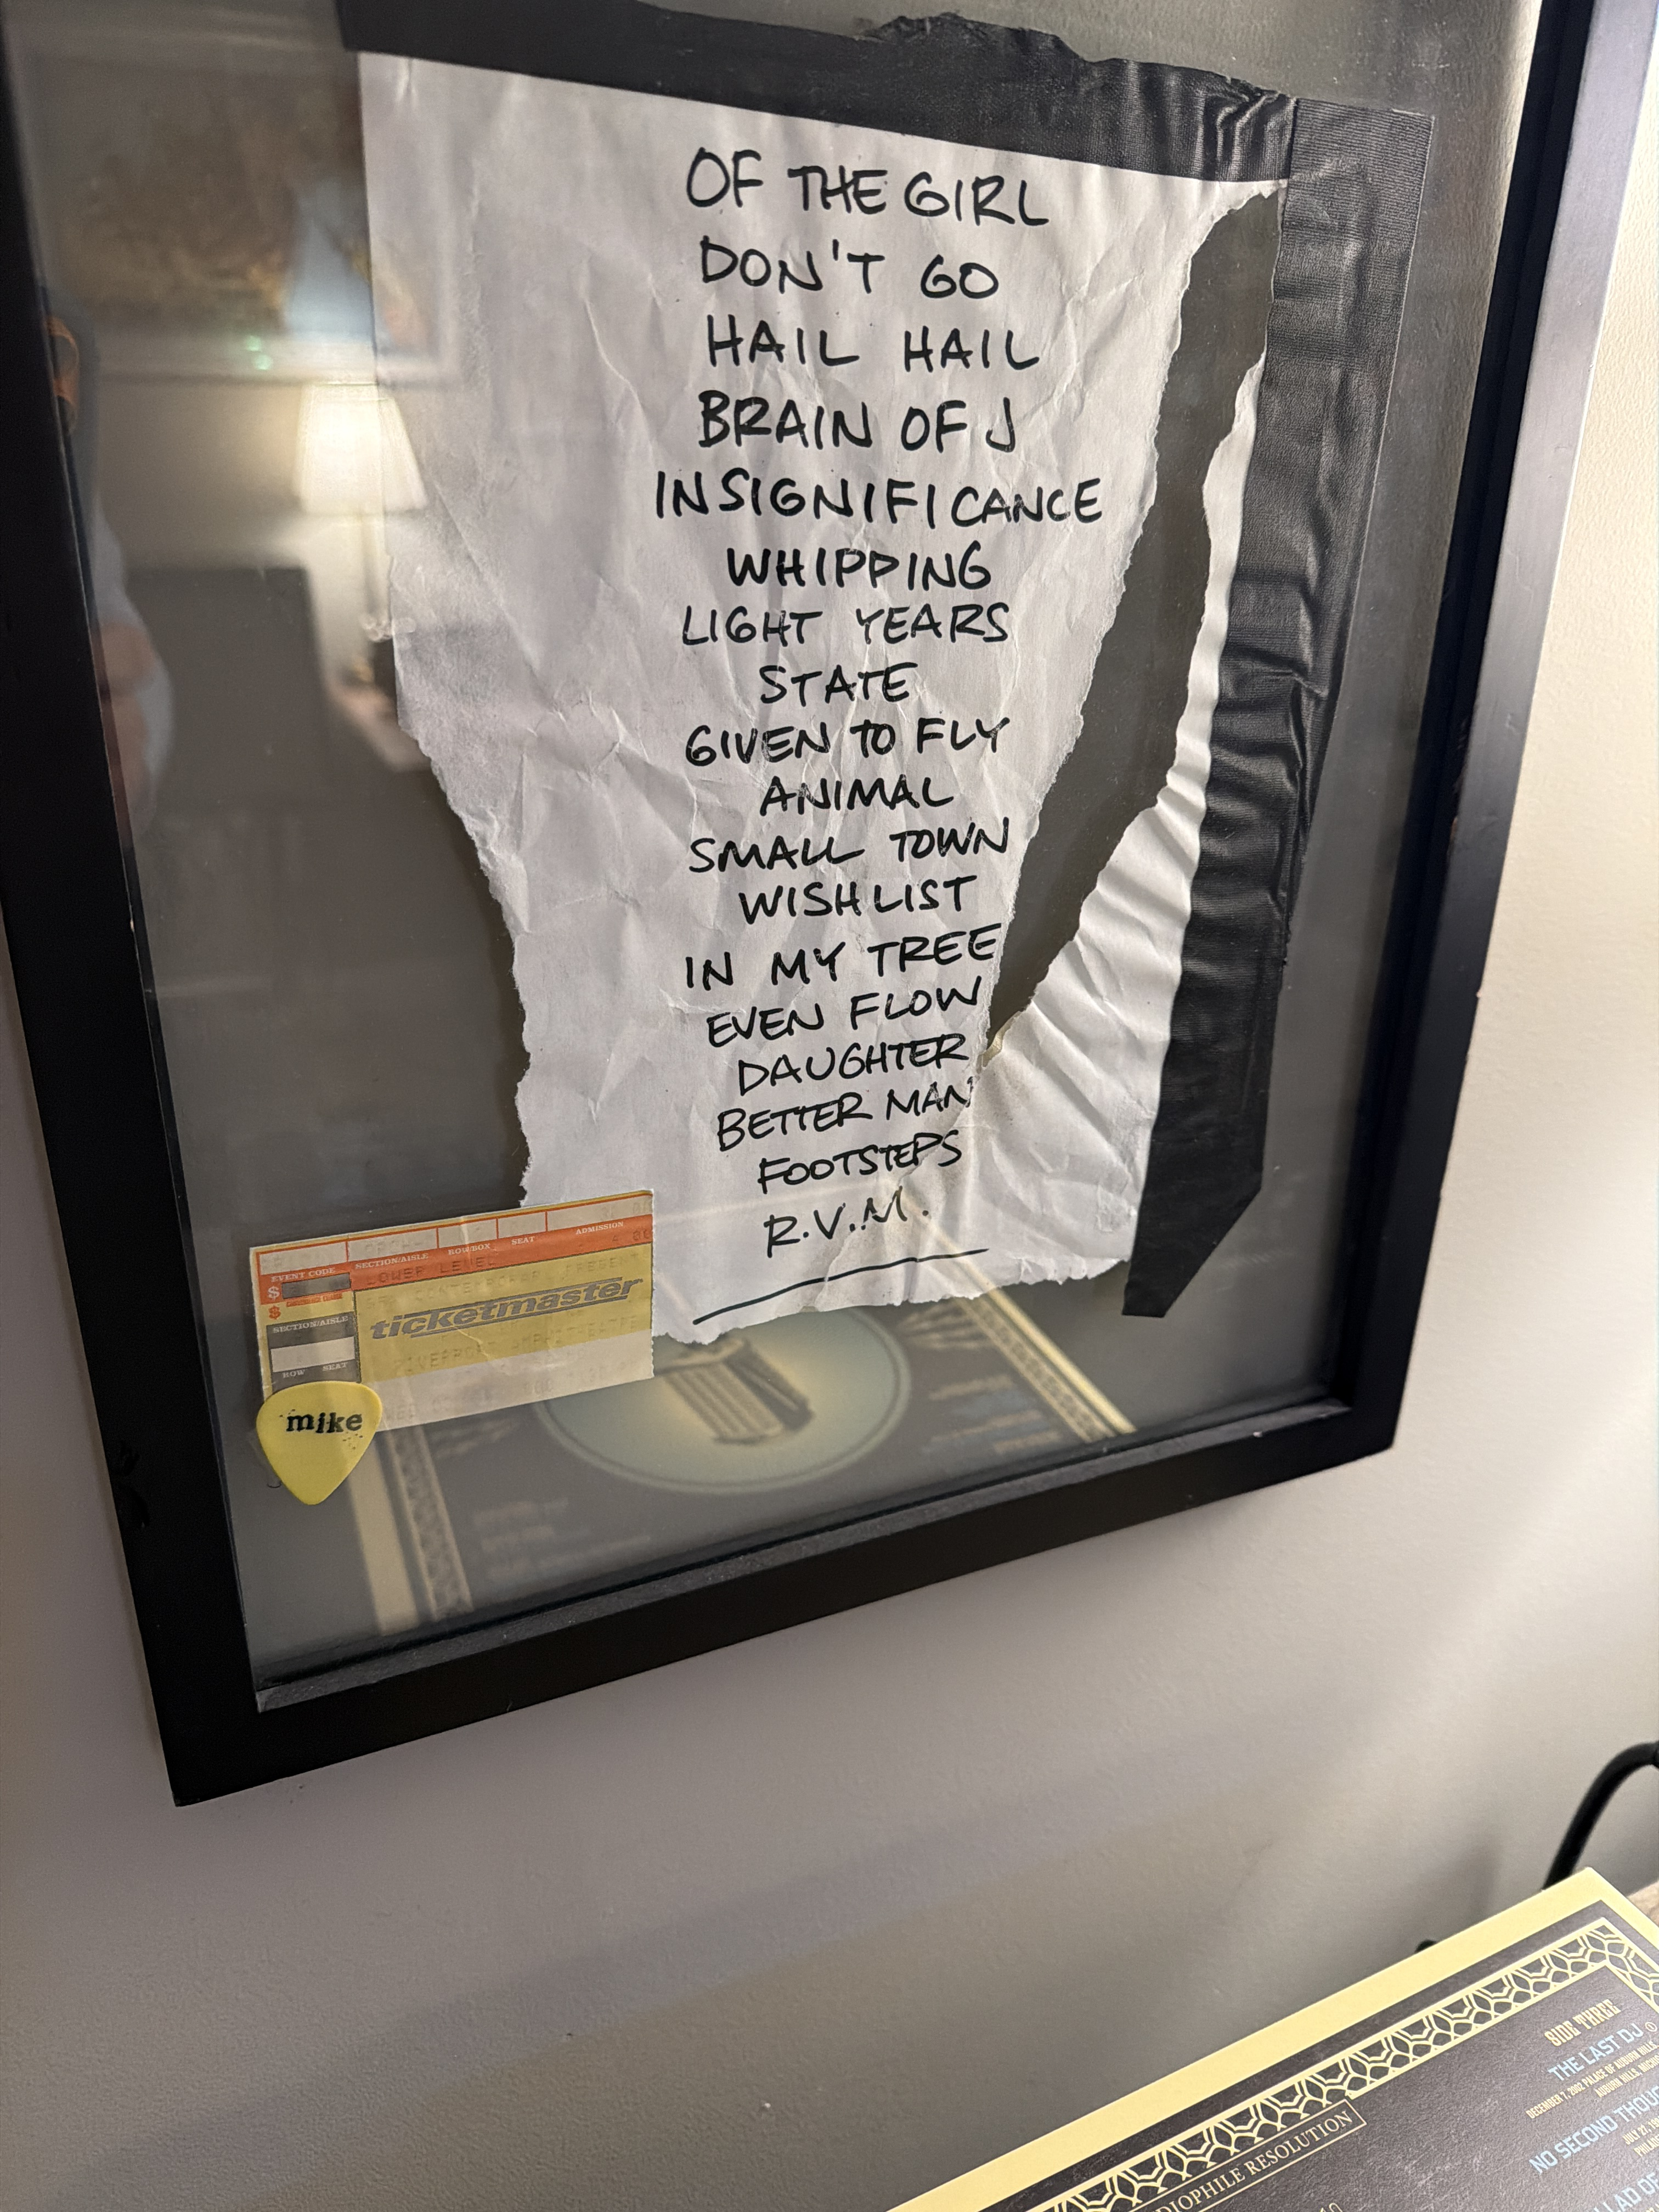 OF THE GIRL
DON'T GO
HAIL HAIL
BRAIN OF J
INSIGNIFICANCE
WHIPPING
LIGHT YEARS
STATE
GIVEN TO FLY
ANIMAL
SMALL TOWN
WISHLIST
IN MY TREE
EVEN FLOW
DAUGHTER
BETTER MAN
FOOTSTEPS
R.V.M.
EVENT CODE SECTION/AISLE ROW/BOX SEAT ADMISSION
$ LOWER LEVEL
$
ticketmaster
SECTION/AISLE
ROW SEAT
mike
SIDE THREE
THE LAST DJ
DECEMBER 7, 2002 PALACE OF AUBURN HILLS
AUBURN HILLS,
NO SECOND
JULY 22,
AD OF
RESOLUTION